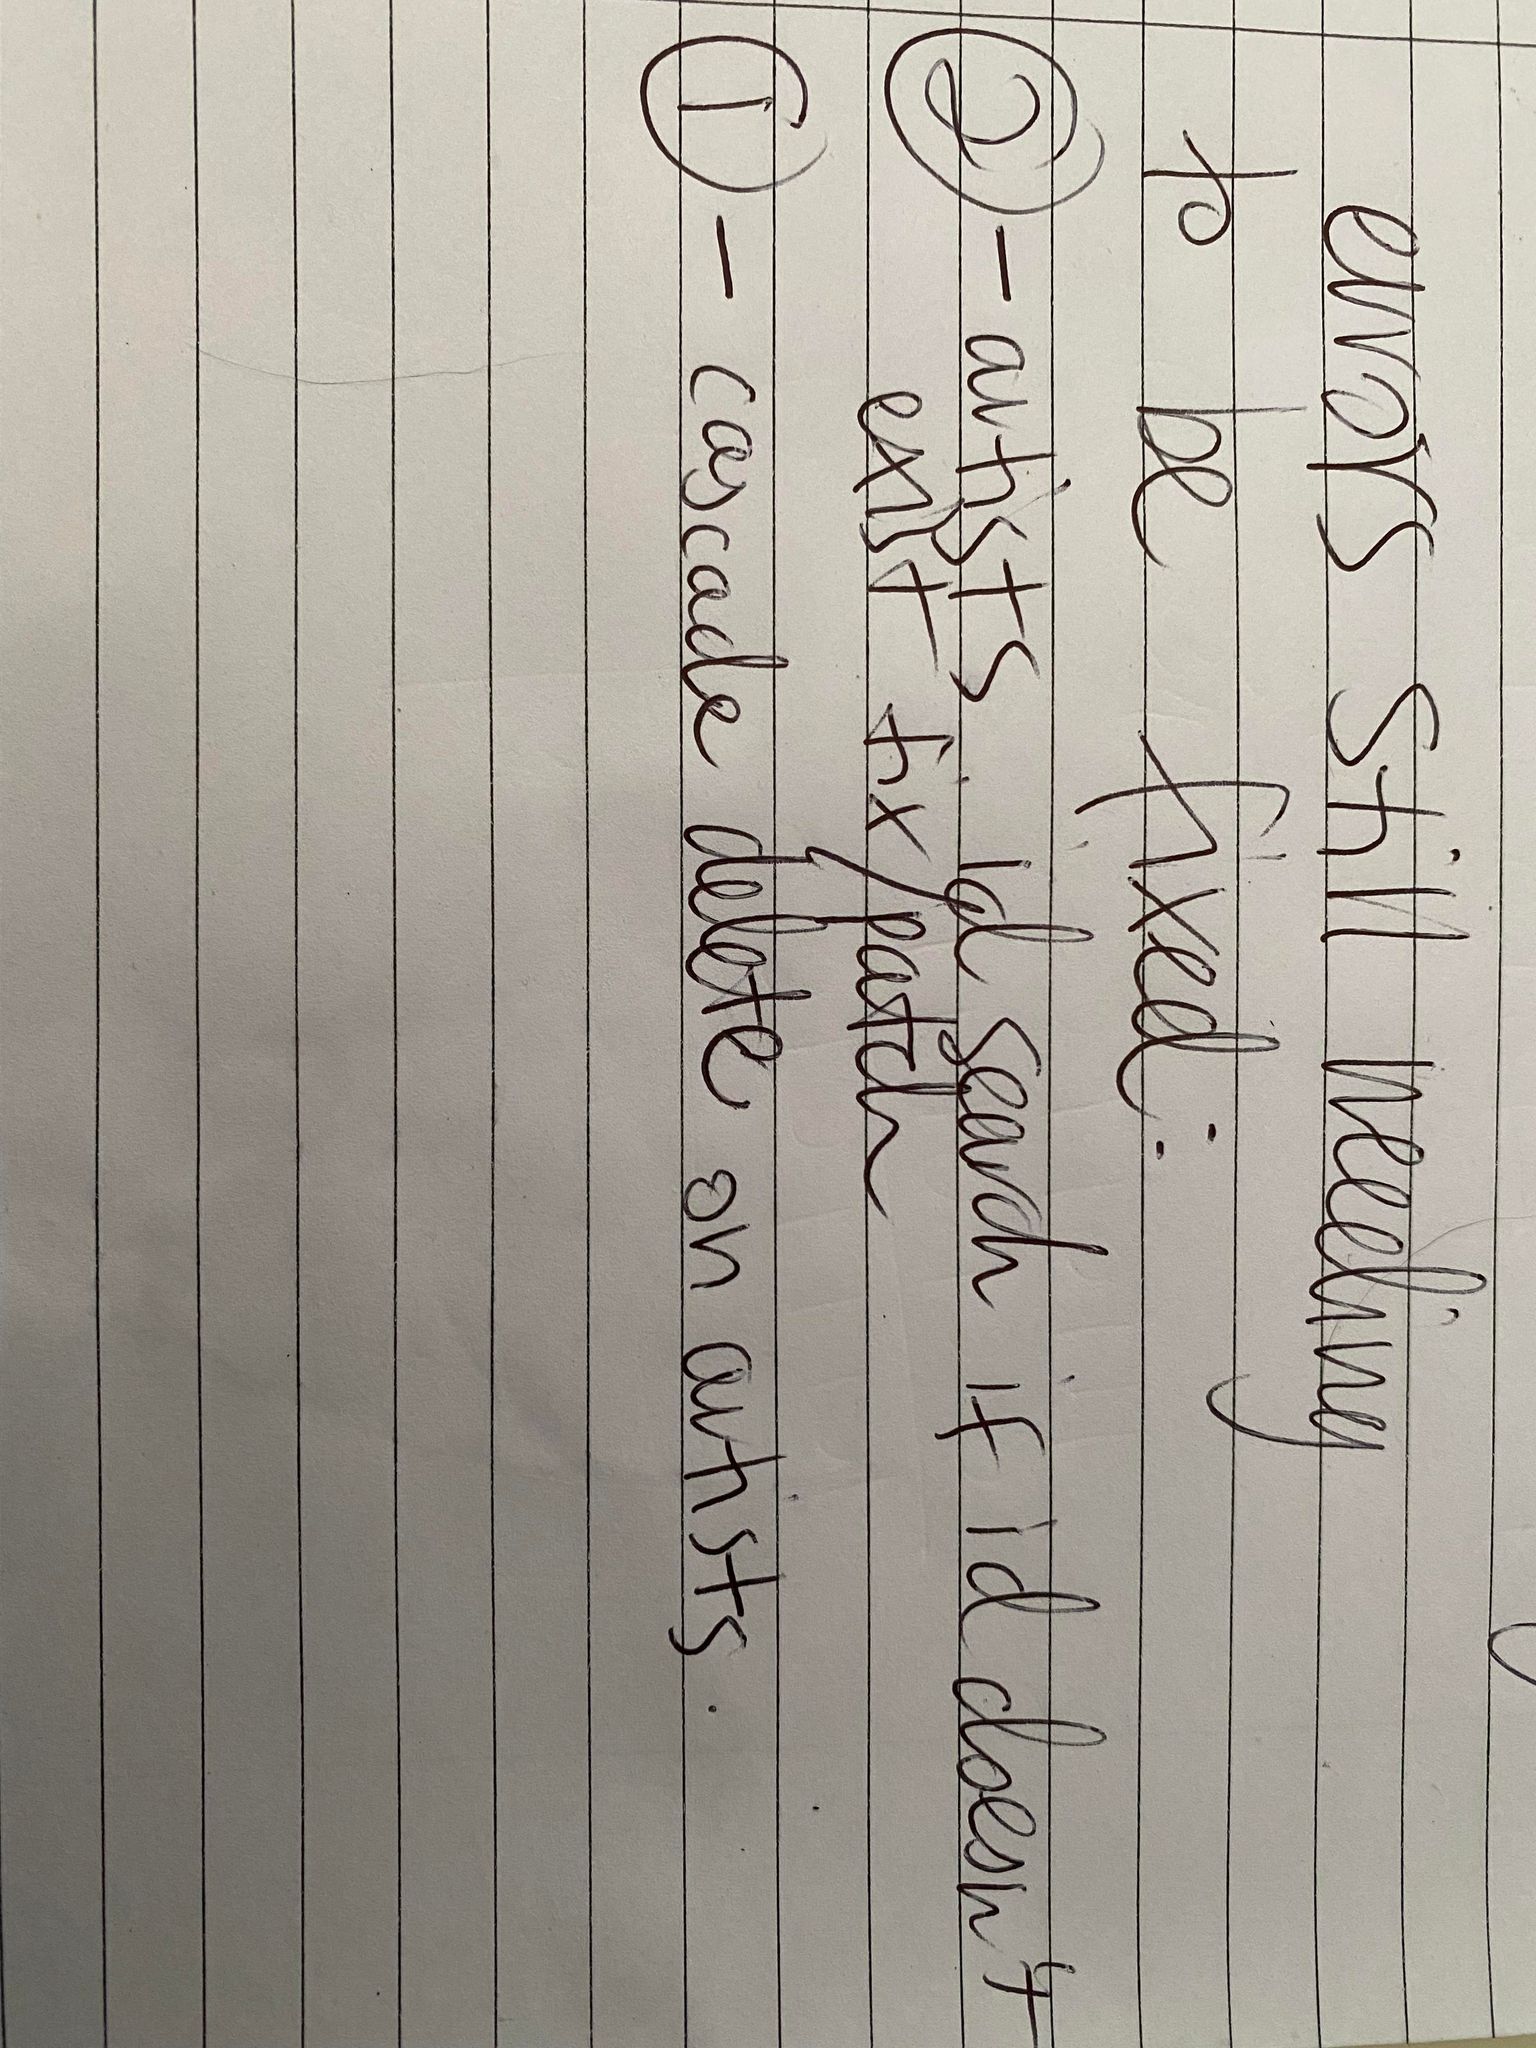 errors still needing
to be fixed:
② - artists. id search if id doesn't
exist fix/patch
① - cascade delete on artists.